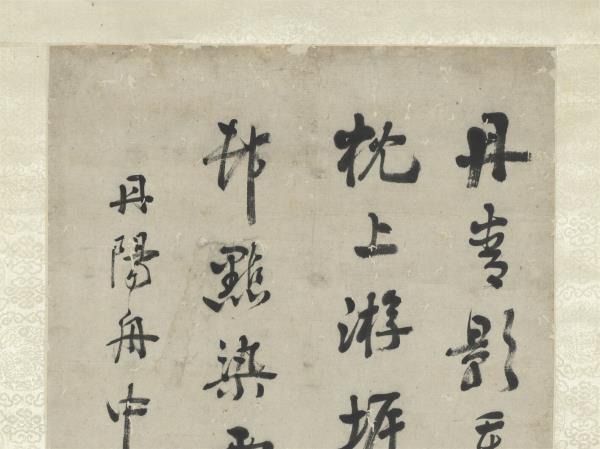 丹青影
枕上游
邨點染
丹陽舟中